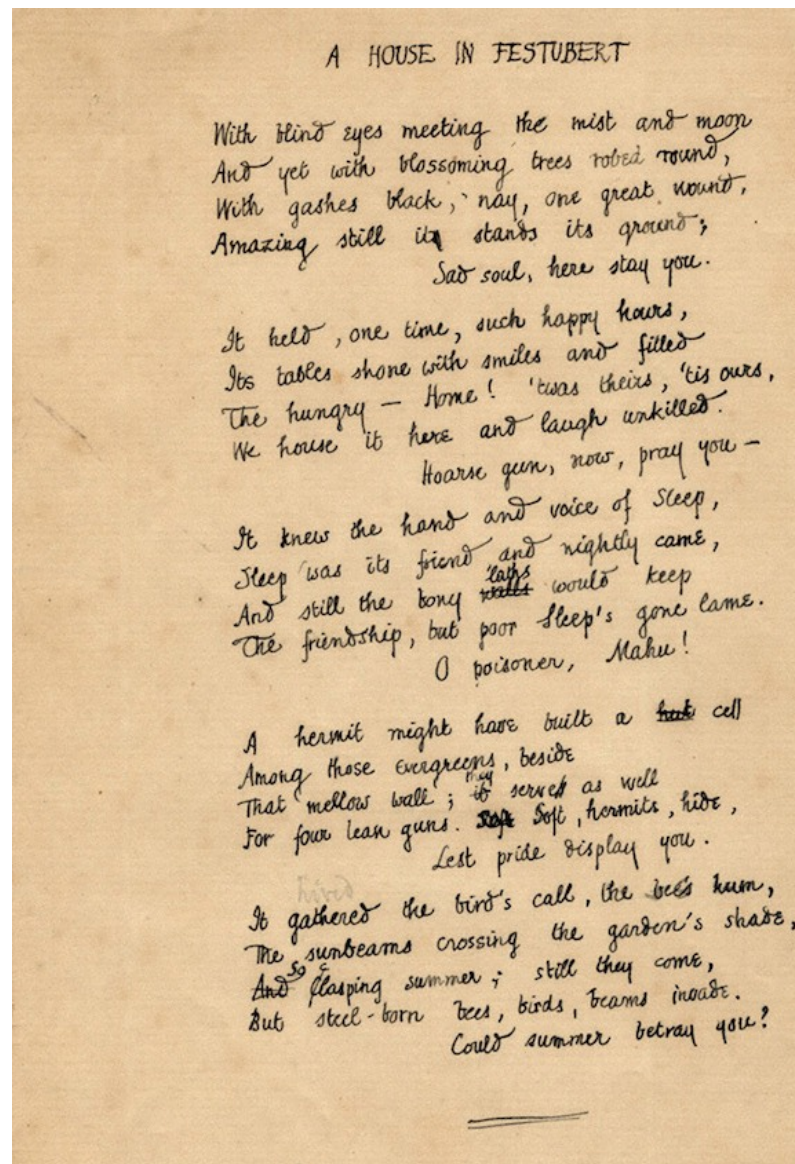 A HOUSE IN FESTUBERT
With blind eyes meeting the mist and moon
And yet with blossoming trees robed round,
With gashes black, nay, one great wound,
Amazing still it stands its ground;
Sad soul, here stay you.
It held, one time, such happy hours,
Its tables shone with smiles and filled
The hungry — Home! 'twas theirs, 'tis ours,
We house it here and laugh unkilled.
Hoarse gun, now, pray you —
It knew the hand and voice of Sleep,
Sleep was its friend and nightly came,
And still the bony walls laths would keep
The friendship, but poor Sleep's gone lame.
O poisoner, Mahu!
A hermit might have built a hut cell
Among those evergreens, beside
That mellow wall; it they serves as well
For four lean guns. Soft, hermits, hide,
Lest pride display you.
It gathered the bird's call, the bee's hum,
The sunbeams crossing the garden's shade,
And So clasping summer; still they come,
But steel-born bees, birds, beams invade.
Could summer betray you?